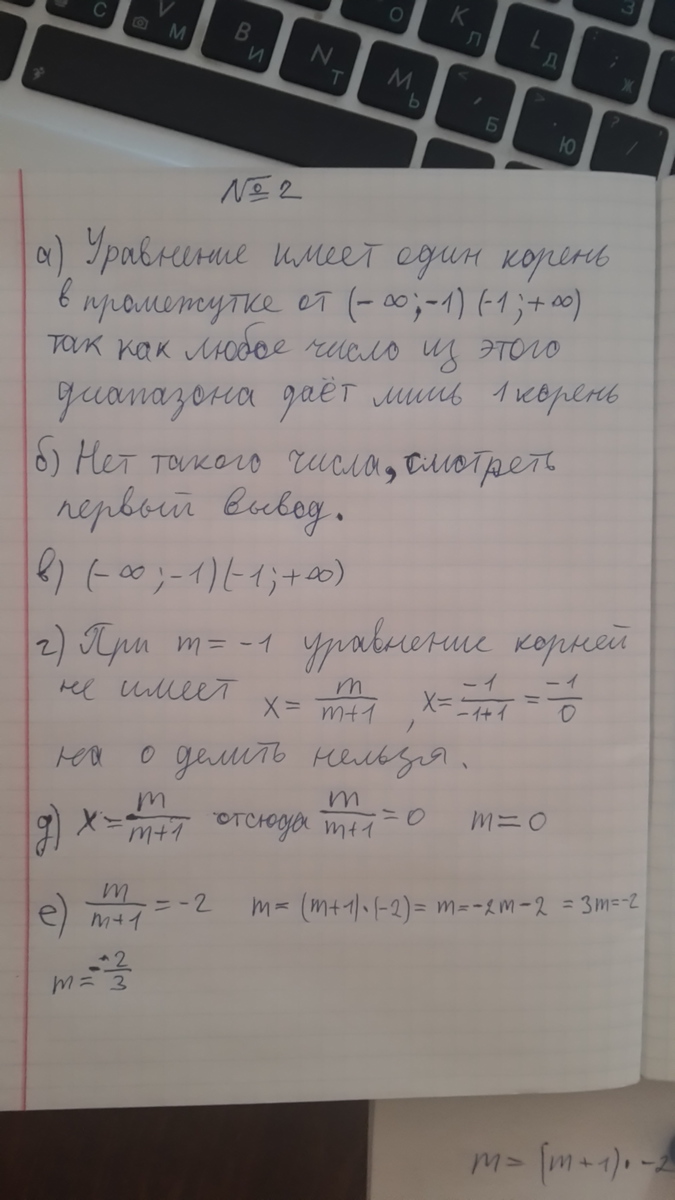 C
V
М
B
И
N
Т
M
Ь
О
K
Л
L
Д
;
Ж
З
<
,
Б
>
.
Ю
?
/
№ 2
а) Уравнение имеет один корень
в промежутке от (-∞;-1) (-1;+∞)
так как любое число из этого
диапазона даёт лишь 1 корень
б) Нет такого числа, смотреть
первый вывод.
в) (-∞;-1)(-1;+∞)
г) При m = -1 уравнение корней
не имеет x = m/(m+1), x = -1/(-1+1) = -1/0
на 0 делить нельзя.
д) x = m/(m+1) отсюда m/(m+1) = 0 m = 0
е) m/(m+1) = -2 m = (m+1)·(-2) = m = -2m-2 = 3m = -2
m = -2/3
m = (m+1)· -2